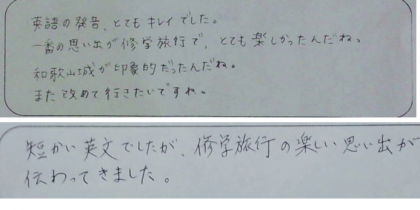 英語の発音、とてもキレイでした。
一番の思い出が修学旅行で、とても楽しかったんだね。
和歌山城が印象的だったんだね。
また改めて行きたいですね。
短かい英文でしたが、修学旅行の楽しい思い出が
伝わってきました。